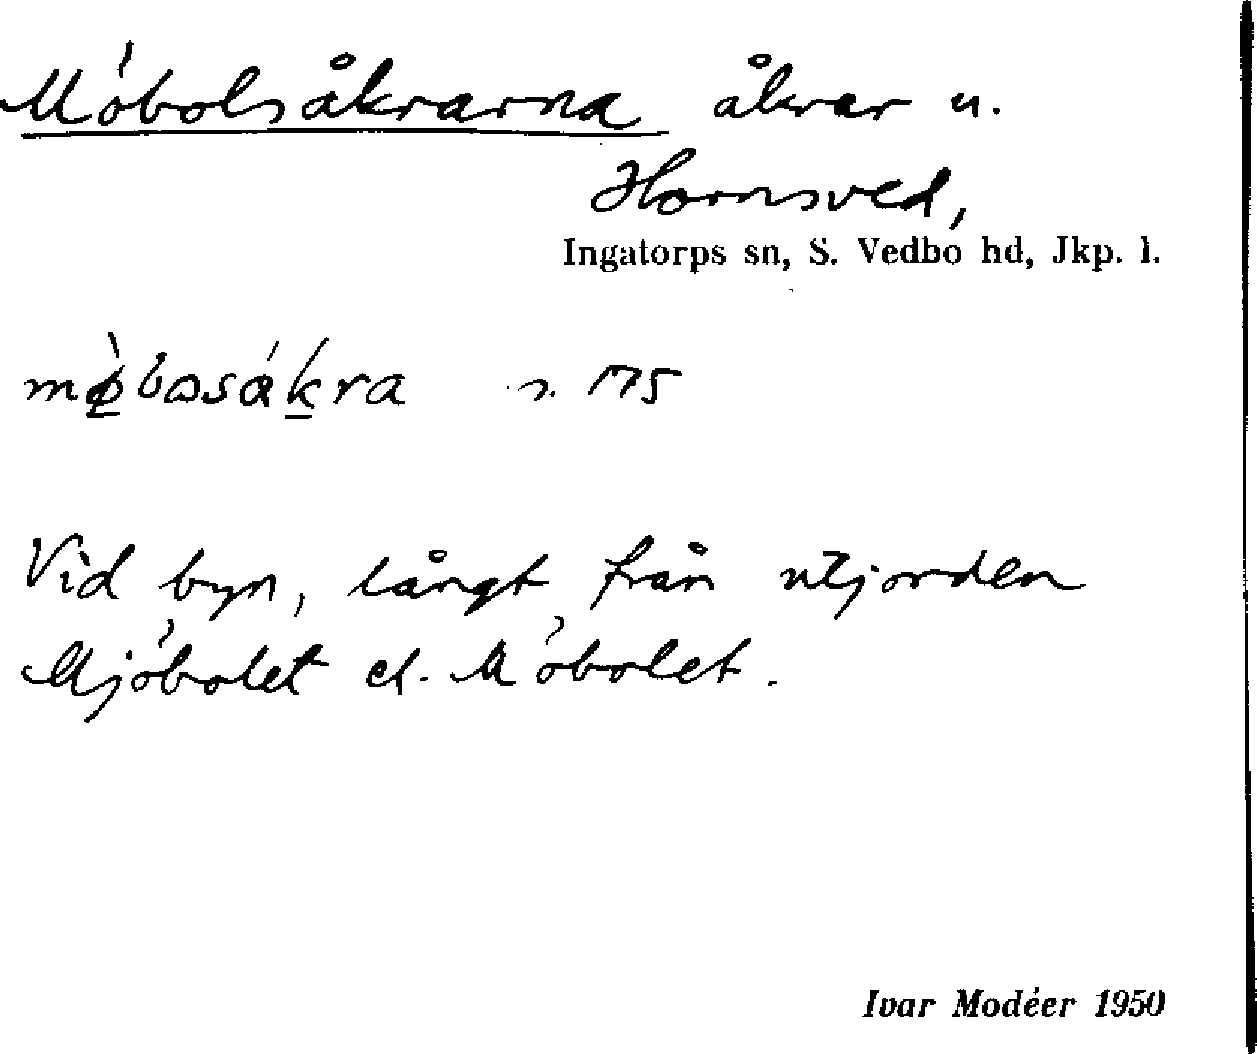 Möbolsåkrarna åkrar u.
Hornsved,
Ingatorps sn, S. Vedbo hd, Jkp. l.
mø̀bɷsákra s. 175
Vid byn, långt från utjorden
Mjöbolet el. Möbolet.
Ivar Modéer 1950